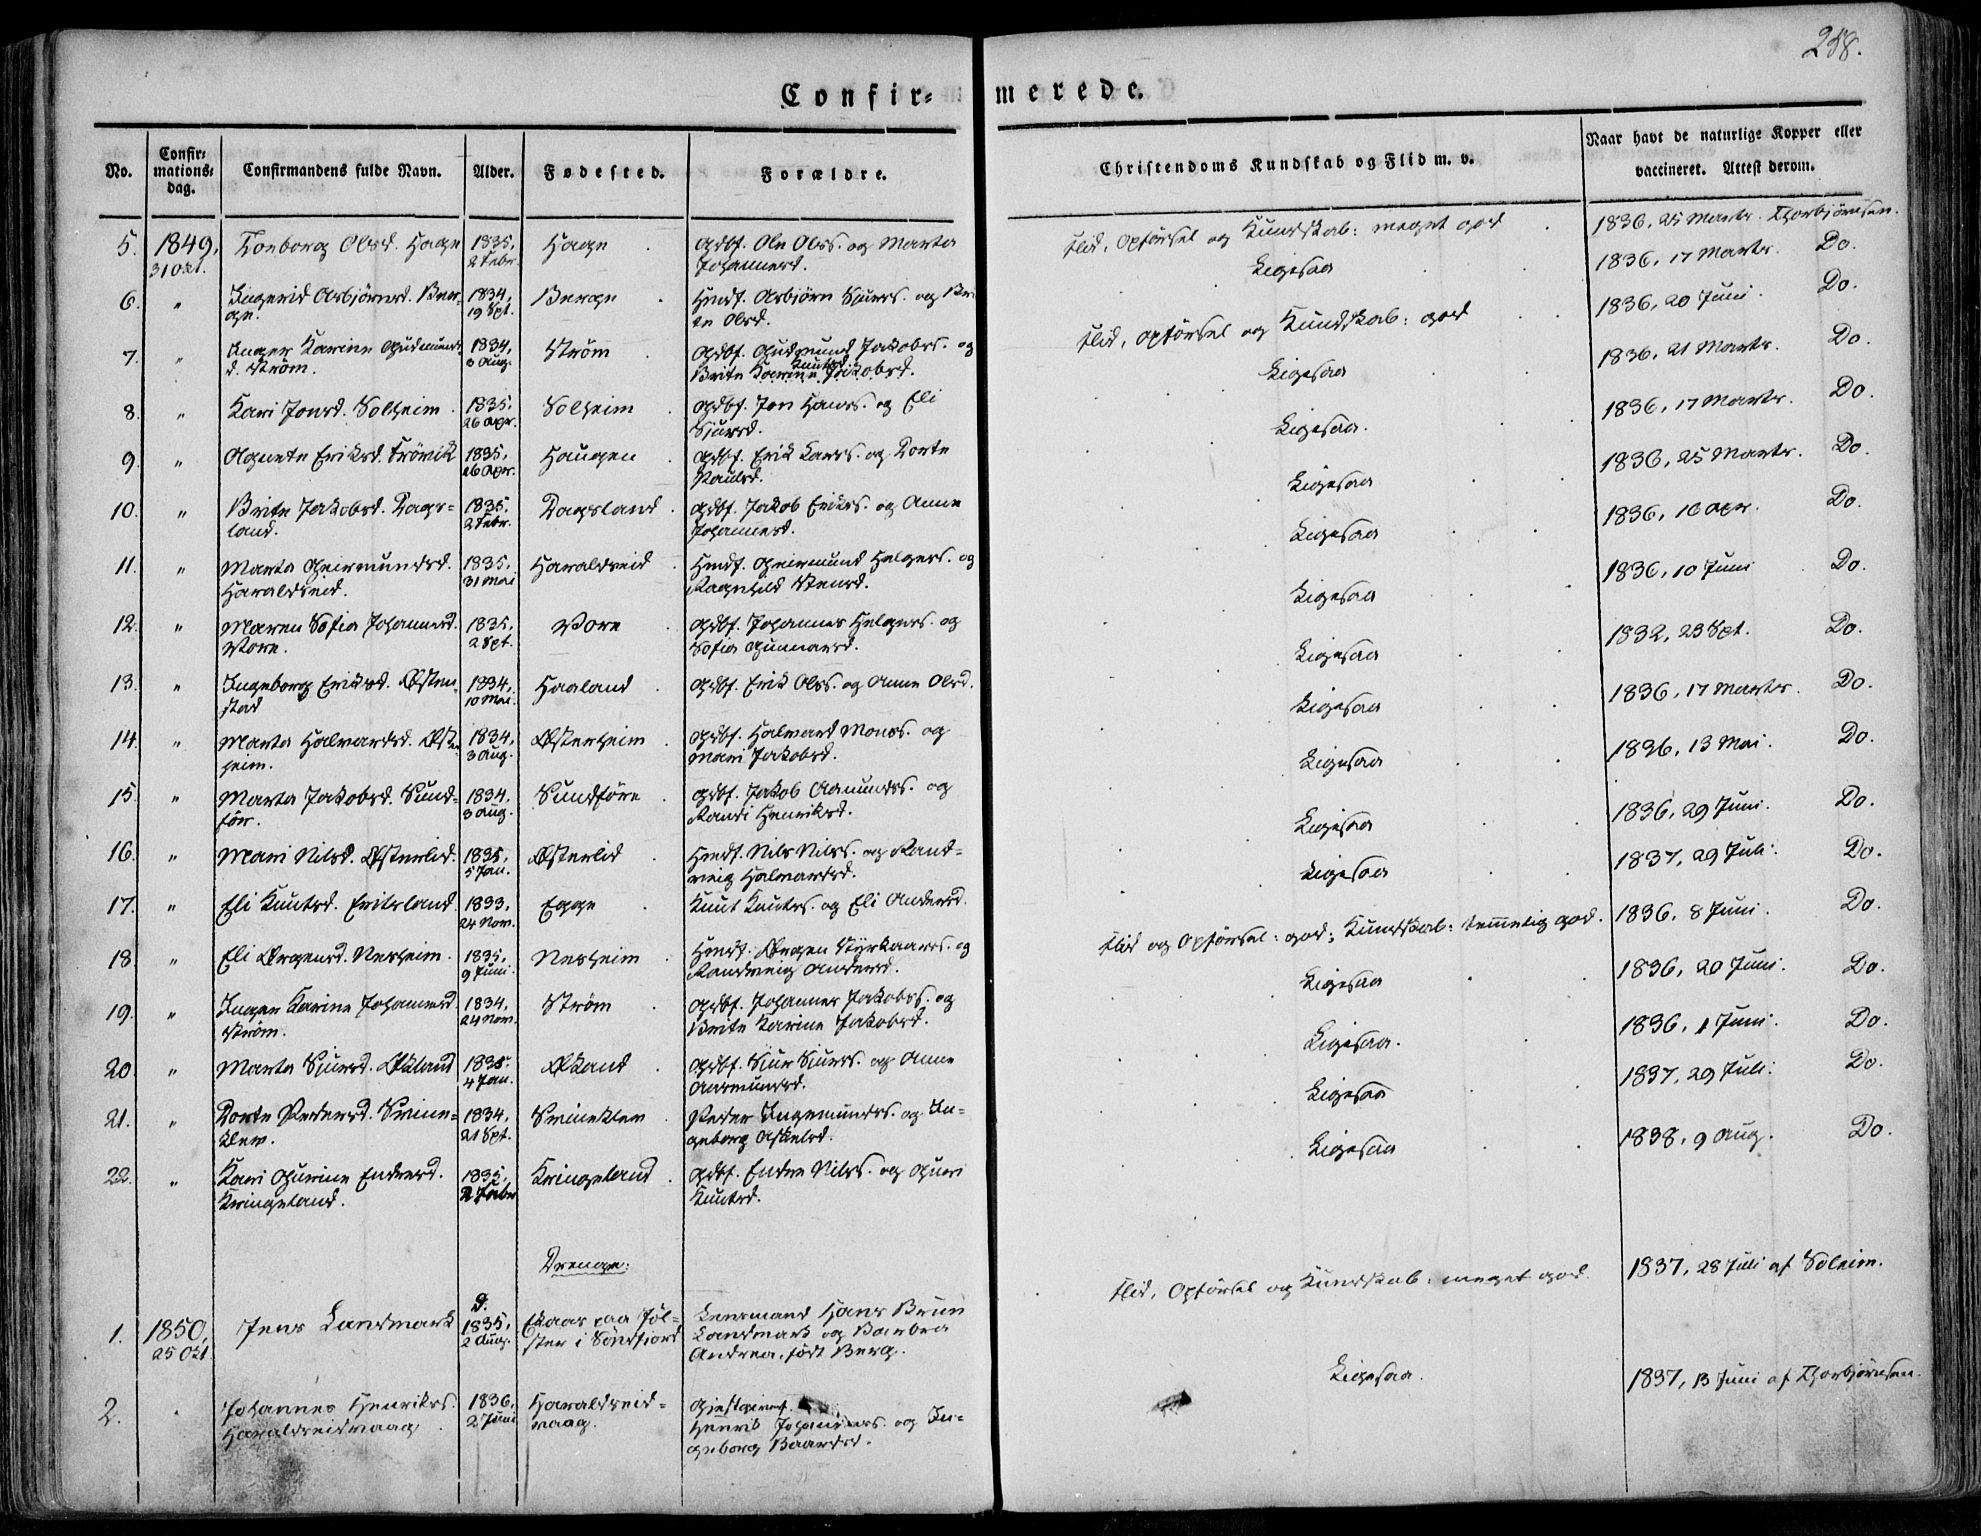 258.
Confir= merede.
No. Confir= mations= dag. Confirmandens fulde Navn. Alder. Fødested. Forældre. Christendoms Kundskab og Flid m. v. Naar havt de naturlige Kopper eller vaccineret. Attest derom.
5. 1849, 31 Okt. Tonborg Olsd. Hage 1835, 2 Febr. Hage Gdbf. Ole Olss. og Marta Johannesd. Flid, Opførsel og Kundskab: meget god 1836, 25 Marts. Thorbjörnsen.
6. " Ingerid Asbjörnsd. Ber= ge. 1834, 19 Spt. Berge Hmdf. Asbjörn Sjurss. og Bri= te Olsd. Ligesaa 1836, 17 Marts. Do.
7. " Inger Karine Gudmunds= d. Ström. 1834, 3 Aug. Ström Gdbf. Gudmund Jakobss. og Brite Karine Knutsd. Flid, Opførsel og Kundskab: god 1836, 20 Juni. Do.
8. " Kari Jonsd. Solheim 1835, 26 Apr. Solheim Gdbf. Jon Hanss. og Eli Sjursd. Ligesaa 1836, 21 Marts. Do.
9. " Agnete Eriksd. Frövik 1835, 26 Apr. Haugen Gdbf. Erik Larss. og Dorte Paulsd. Ligesaa. 1836, 17 Marts. Do.
10. " Brite Jakobsd. Dags= land. 1835, 2 Febr. Dagsland Gdbf. Jakob Erikss. og Anne Johannesd. Ligesaa 1836, 25 Marts. Do.
11. " Marta Geirmundsd. Haraldseid. 1835, 31 Mai Haraldseid Hmdf. Geirmund Helgess. og Ragnhild Stensd. Ligesaa 1836, 16 Apr. Do.
12. " Maren Sofia Johannesd. Vore. 1835, 2 Spt. Vore Gdbf. Johannes Helgess. og Sofia Gunnarsd. Ligesaa 1836, 10 Juni Do.
13. " Ingeborg Eriksd. Østen= stad 1834, 10 Mai. Haaland Gdbf. Erik Olss. og Anne Olsd. Ligesaa 1832, 23 Spt. Do.
14. " Marta Halvardsd. Øster= heim. 1834, 3 Aug. Østerheim Gdbf. Halvard Monss. og Mari Jakobsd. Ligesaa 1836, 17 Marts. Do.
15. " Marta Jakobsd. Sund= för. 1834, 3 Aug. Sundföre Gdbf. Jakob Aamundss. og Randi Henriksd. Ligesaa 1836, 13 Mai. Do.
16. " Mari Nilsd. Østerlid. 1835, 5 Jan. Østerlid Hmdf. Nils Nilss. og Rand= veig Halvardsd. Ligesaa 1836, 29 Juni. Do.
17. " Eli Knutsd. Eritsland 1833, 24 Nov. Egge Knut Knutss. og Eli Andersd. Ligesaa 1837, 29 Juli. Do.
18. " Eli Ørgensd. Nesheim. 1835, 9 Juni. Nesheim Hmdf. Ørgen Styrkaarss. og Randveig Andersd. Flid og Opførsel: god; Kundskab: temelig god. 1836, 8 Juni. Do.
19. " Inger Karine Johannesd. Ström. 1834, 24 Nov. Ström Gdbf. Johannes Jakobss. og Brite Karine Jakobsd. Ligesaa 1836, 20 Juni. Do.
20. " Marta Sjursd. Økland 1835, 4 Jan. Økland Gdbf. Sjur Sjurss. og Anne Aasmundsd. Ligesaa. 1836, 1 Juni. Do.
21. " Dorte Pedersd. Svine= klev. 1834, 21 Spt. Svineklev Peder Ingemundss. og In= geborg Askelsd. Ligesaa 1837, 29 Juli. Do.
22. " Kari Gurine Endresd. Kringeland. 1835, 2 Febr. Kringeland Gdbf. Endre Nilss. og Guri Knutsd. Ligesaa 1838, 9 Aug. Do.
Drenge:
1. 1850, 25 Okt. Jens Landmark d. 1835, 2 Aug. Skaas paa Jöl= ster i Söndfjord Lensmand Hans Brun Landmark og Barbra Andrea, födt Berg. Flid, Opførsel og Kundskab: meget god. 1837, 28 Juli af Soleim.
2. Johannes Henrikss. Haraldseidvaag 1836, 2 Juni Haraldseid= vaag. Gjestgiver Henrik Johanness. og In= geborg Baardsd. Ligesaa. 1837, 13 Juni af Thorbjörnsen.